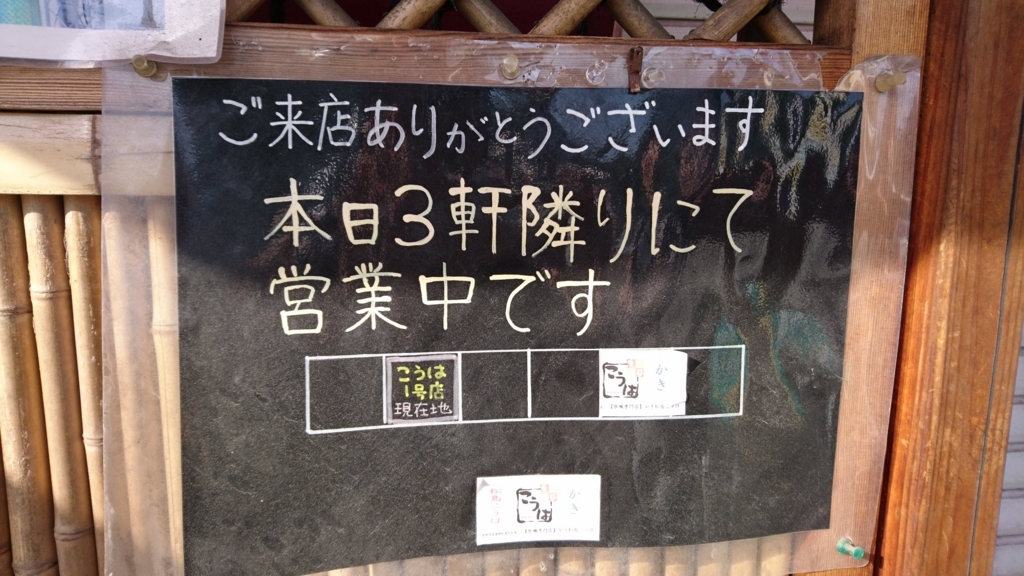 ご来店ありがとうございます
本日3軒隣りにて
営業中です
こうは
1号店
現在地
こうは
かき
こうは
かき